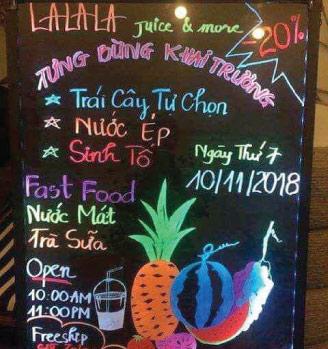 LALALA Juice & more
-20%
TƯNG BỪNG KHAI TRƯƠNG
Trái Cây Tự Chọn
Nước Ép
Sinh Tố
Ngày Thứ 7
10/11/2018
Fast Food
Nước Mát
Trà Sữa
Open
10:00AM
11:00PM
Freeship